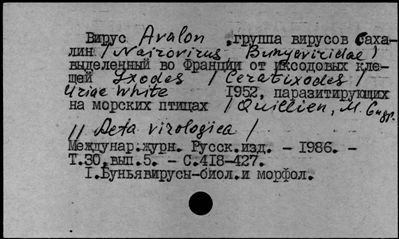 Вирус Avalon ,группа вирусов Саха-
лин / Nairovirus, Bunyaviridae /
выделенный во Франции от иксодовых кле-
щей Ixodes / Ceratixodes /
Uriae White 1952, паразитирующих
на морских птицах / Quillien, M. C.
// Acta virologica /
Междунар.журн. Русск.изд. - 1986. -
Т.30,вып.5. - С.418-427.
I.Буньявирусы-биол.и морфол.